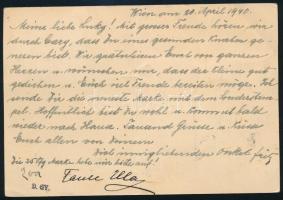 Wien am 20. April 1940.
Meine liebe Luky! Mit grosser Freude hören wir
durch Cary, dass Du einen gesunden Knaben ge-
boren bist. Wir gratulieren Euch von ganzem
Herzen u. wünschen nur, dass der Kleine gut
gedeihen u. Euch viel Freude bereiten möge. Ich
sende Dir die neueste Marke mit dem Sonderstem-
pel. Hoffentlich bist Du wohl u. kommst bald
wieder nach Hause. Tausend Grüsse u. Küsse
Euch allen von Deinem
Dich innigliebenden Onkel Fritz
Die Marke bitte auf!
Tante Ella